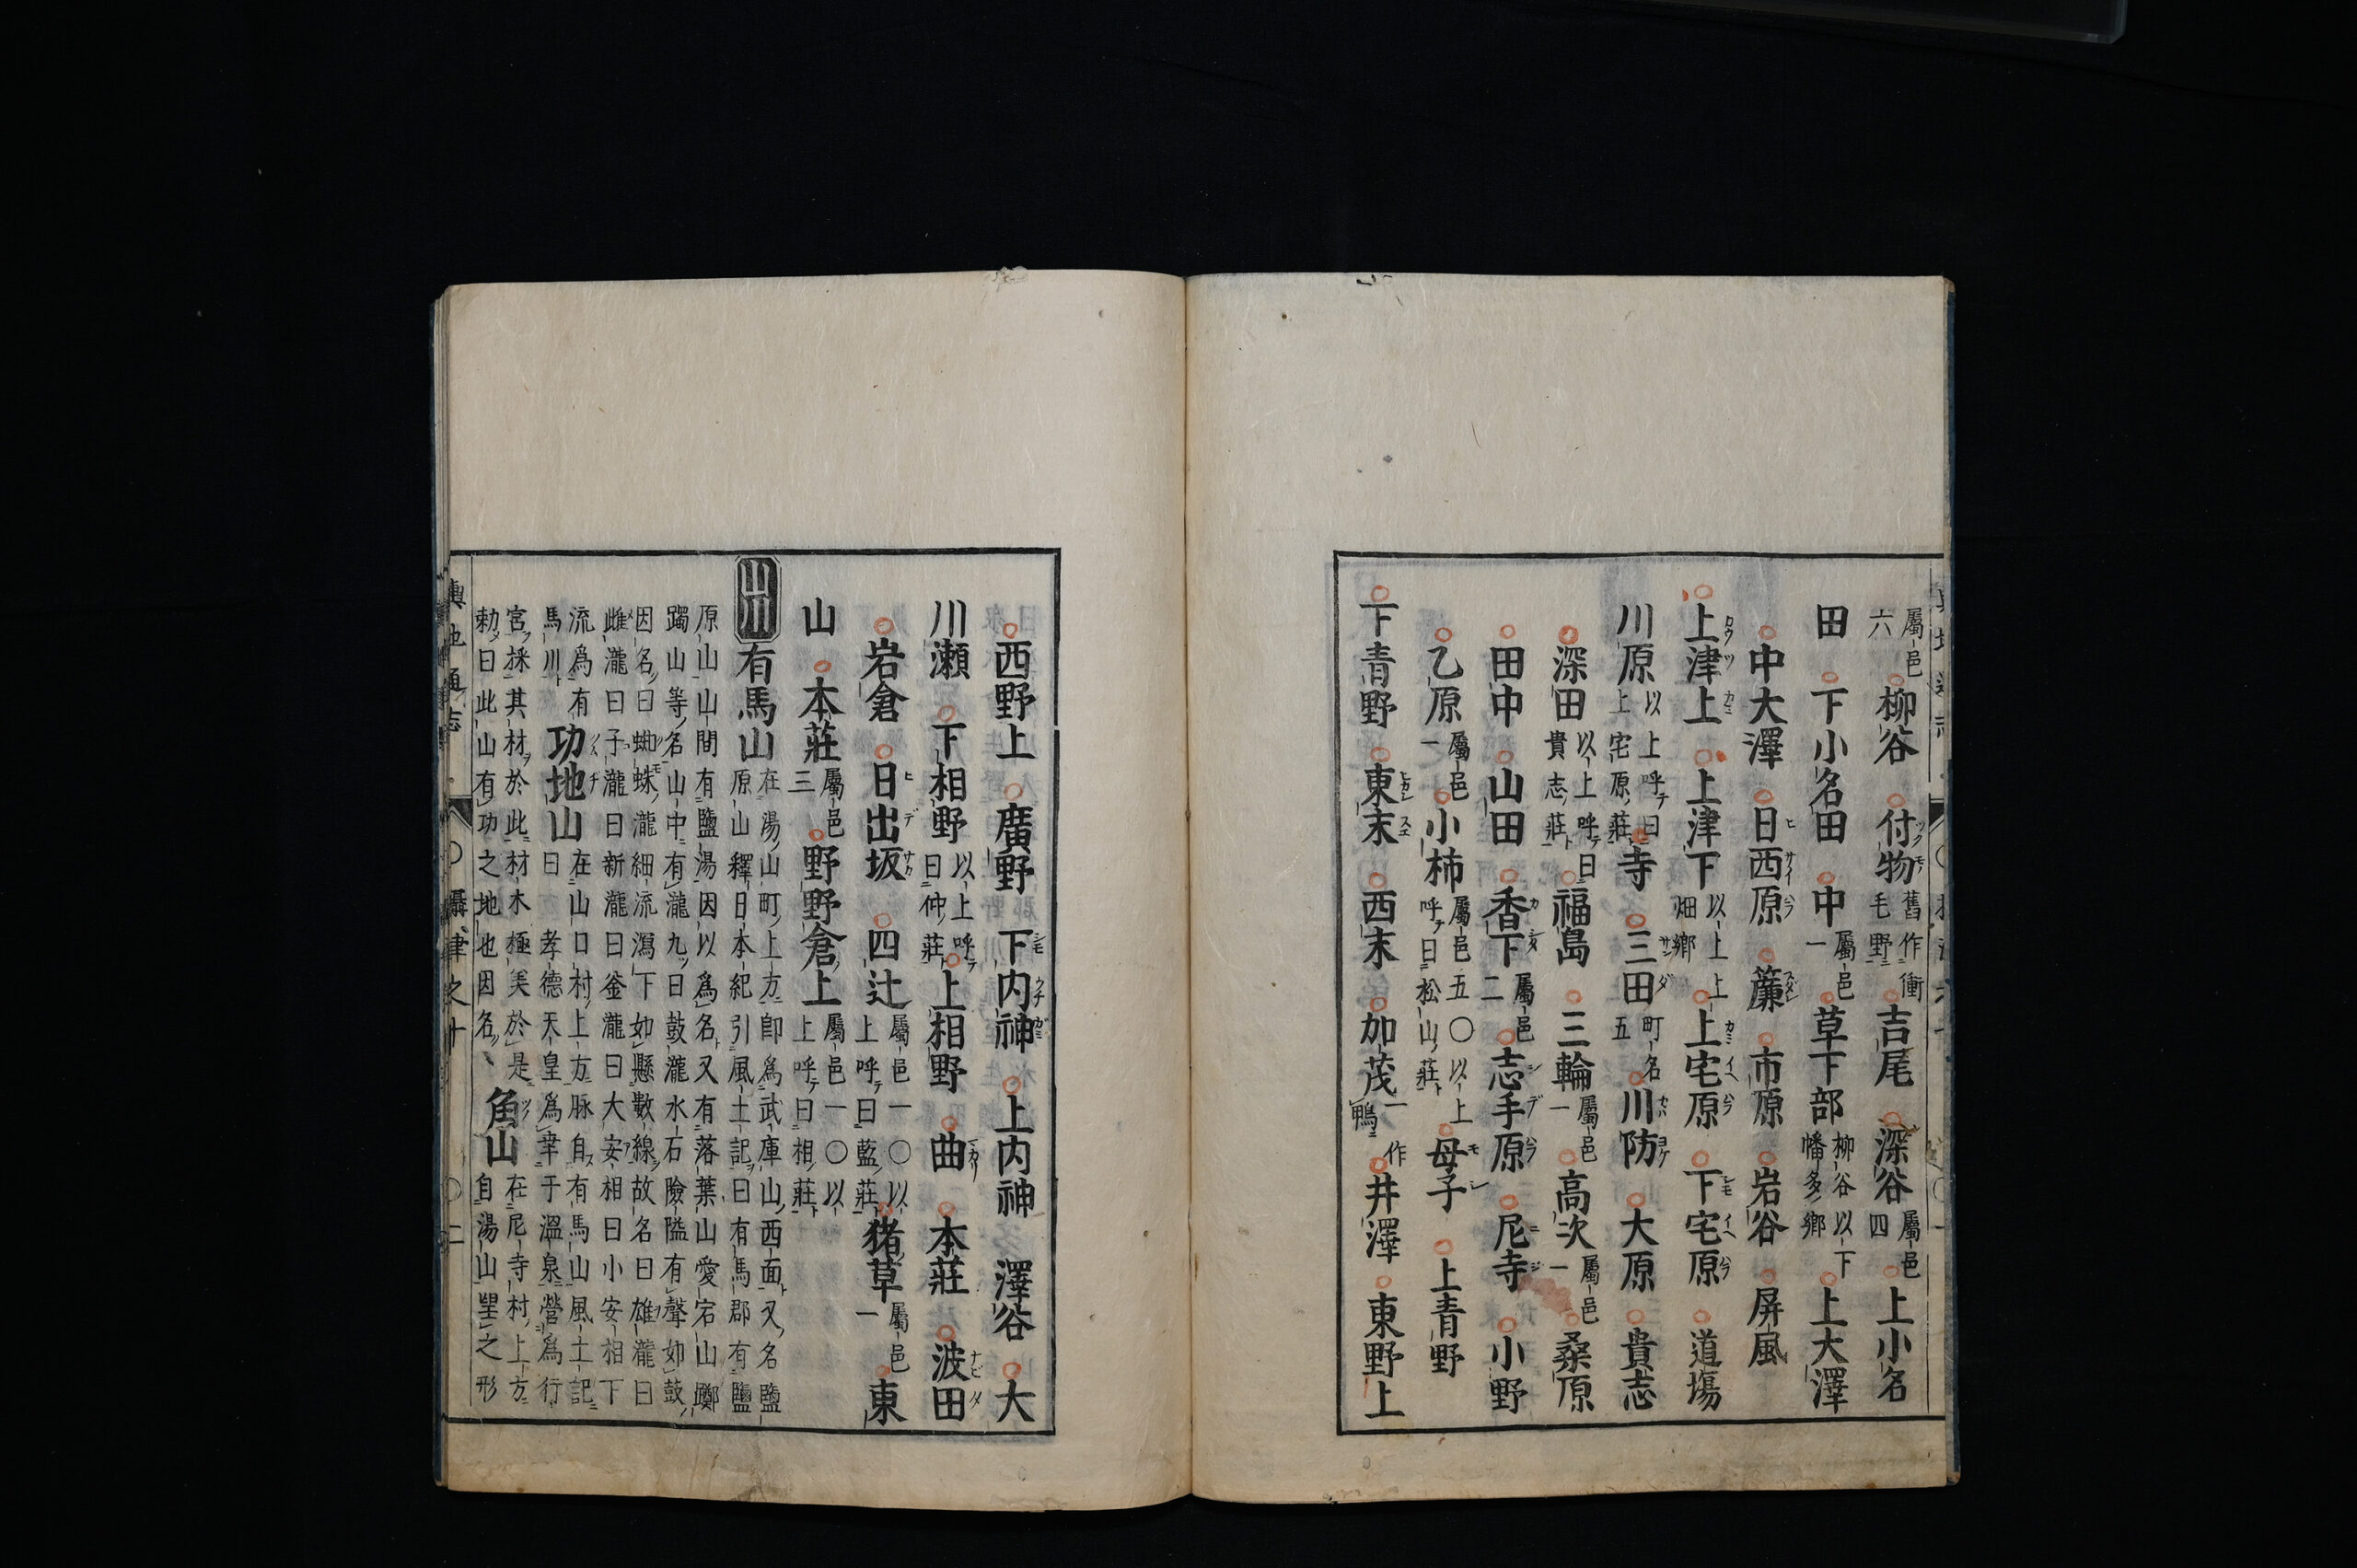 屬邑六○柳谷○付物舊作衝毛野○吉尾○深谷屬邑四○上小名
田○下小名田○中屬邑一○草下部柳谷以下幡多鄉○上大澤
○中大澤○日西原○簾○市原○岩谷○屏風
○上津上○上津下以上上畑鄉○上宅原○下宅原○道塲
川原以上呼曰上宅原莊○寺○三田町名五○川防○大原○貴志
○深田以上呼曰貴志莊○福島○三輪屬邑一○高次屬邑一○桑原
○田中○山田○香下屬邑二○志手原○尼寺○小野
○乙原屬邑一○小柿屬邑五○以上呼曰松山莊○母子○上青野
○下青野○東末○西末○加茂一作鴨○井澤○東野上
○西野上○廣野○下内神○上内神 澤谷○大
川瀬○下相野以上呼曰仲莊○上相野○曲○本莊○波田
○岩倉○日出坂○四辻屬邑一○以上呼曰藍莊○猪草屬邑一○東
山○本莊屬邑三○野野倉上屬邑一○以上呼曰相莊
山川 有馬山在湯山町上方卽爲武庫山西面又名鹽
原山釋日本紀引風土記曰有馬郡有鹽
原山山間有鹽湯因以爲名又有落葉山愛宕山躑
躅山等名山中有瀧九曰鼓瀧水石險隘有聲如鼓
因名曰蜘蛛瀧細流瀉下如懸數線故名曰雄瀧曰
雌瀧曰子瀧曰新瀧曰釜瀧曰大安相曰小安相下
流爲有馬川 功地山在山口村上方脉自有馬山風土記
曰孝德天皇爲幸于溫泉營爲行
宮採其材於此材木極美於是
勅曰此山有功之地也因名 角山在尼寺村上方
自湯山望之形
輿地通志 ○攝津之十 ○二